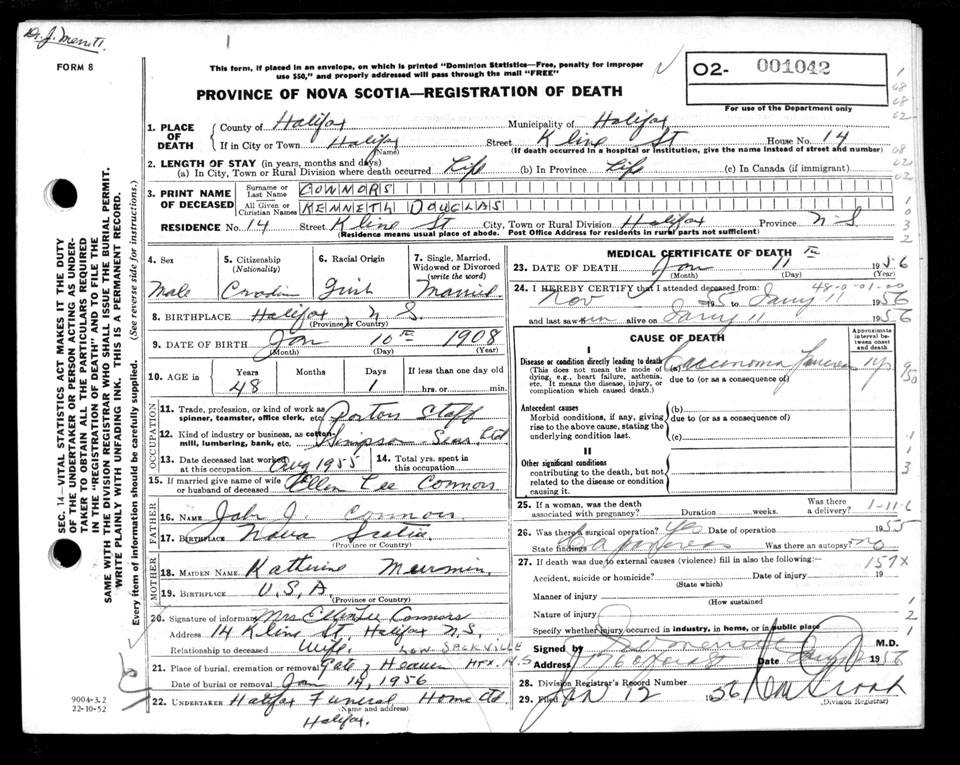 Dr. J. Merritt.
FORM 8
This form, if placed in an envelope, on which is printed "Dominion Statistics—Free, penalty for improper
use $50," and properly addressed will pass through the mail "FREE"
O2- 001042
For use of the Department only
PROVINCE OF NOVA SCOTIA—REGISTRATION OF DEATH
1. PLACE OF DEATH
County of Halifax Municipality of Halifax
If in City or Town Halifax Street Kline St House No. 14
(Name) (If death occurred in a hospital or institution, give the name instead of street and number)
2. LENGTH OF STAY (in years, months and days)
(a) In City, Town or Rural Division where death occurred Life (b) In Province Life (c) In Canada (if immigrant)
3. PRINT NAME OF DECEASED
Surname or Last Name CONNORS
All Given or Christian Names KENNETH DOUGLAS
RESIDENCE No. 14 Street Kline St City, Town or Rural Division Halifax Province N-S
(Residence means usual place of abode. Post Office Address for residents in rural parts not sufficient)
4. Sex Male
5. Citizenship (Nationality)
6. Racial Origin
7. Single, Married, Widowed or Divorced (write the word) Married
8. BIRTHPLACE Halifax, N.S.
(Province or Country)
9. DATE OF BIRTH Jan 10th 1908
(Month) (Day) (Year)
10. AGE in Years 48 Months Days 1 If less than one day old hrs. or min.
OCCUPATION
11. Trade, profession, or kind of work as spinner, teamster, office clerk, etc. Staff
12. Kind of industry or business, as cotton-mill, lumbering, bank, etc. Simpson-Sears Ltd
13. Date deceased last worked at this occupation Aug 1955
14. Total yrs. spent in this occupation
15. If married give name of wife or husband of deceased Ellen Lee Connors
FATHER
16. NAME John J. Connors
17. BIRTHPLACE Nova Scotia
(Province or Country)
MOTHER
18. MAIDEN NAME Katherine
19. BIRTHPLACE U.S.A.
(Province or Country)
20. Signature of informant Mrs Ellen Lee Connors
Address 14 Kline St, Halifax N.S.
Relationship to deceased Wife
LOW. SACKVILLE
21. Place of burial, cremation or removal Gate of Heaven Hfx. N.S
Date of burial or removal Jan 14, 1956
22. UNDERTAKER Halifax Funeral Home Ltd
(Name and address)
Halifax.
MEDICAL CERTIFICATE OF DEATH
23. DATE OF DEATH Jan 11th 1956
(Month) (Day) (Year)
24. I HEREBY CERTIFY that I attended deceased from: 48-0-01-00
Nov 1955 to Jany 11 1956
and last saw him alive on Jany 11 1956
CAUSE OF DEATH
Approximate interval between onset and death
I
Disease or condition directly leading to death (a) Carcinoma Pancreas 1 yr
(This does not mean the mode of dying, e.g., heart failure, asthenia, etc. It means the disease, injury, or complication which caused death.)
due to (or as a consequence of)
Antecedent causes
Morbid conditions, if any, giving rise to the above cause, stating the underlying condition last.
(b)
due to (or as a consequence of)
(c)
II
Other significant conditions
contributing to the death, but not related to the disease or condition causing it.
25. If a woman, was the death associated with pregnancy? Duration weeks. Was there a delivery?
26. Was there a surgical operation? Yes Date of operation 1955
State findings Ca pancreas Was there an autopsy? no
27. If death was due to external causes (violence) fill in also the following: 157X
Accident, suicide or homicide? Date of injury 19
(State which)
Manner of injury
(How sustained
Nature of injury
Specify whether injury occurred in industry, in home, or in public place
Signed by M.D.
Address Date 1956
28. Division Registrar's Record Number
29. Filed JAN 12 1956
(Division Registrar)
SEC. 14—VITAL STATISTICS ACT MAKES IT THE DUTY
OF THE UNDERTAKER OR PERSON ACTING AS UNDER-
TAKER TO OBTAIN ALL THE PARTICULARS REQUIRED
IN THE "REGISTRATION OF DEATH" AND TO FILE THE
SAME WITH THE DIVISION REGISTRAR WHO SHALL ISSUE THE BURIAL PERMIT.
WRITE PLAINLY WITH UNFADING INK. THIS IS A PERMANENT RECORD.
Every item of information should be carefully supplied. (See reverse side for instructions.)
9004-3.2
22-10-52